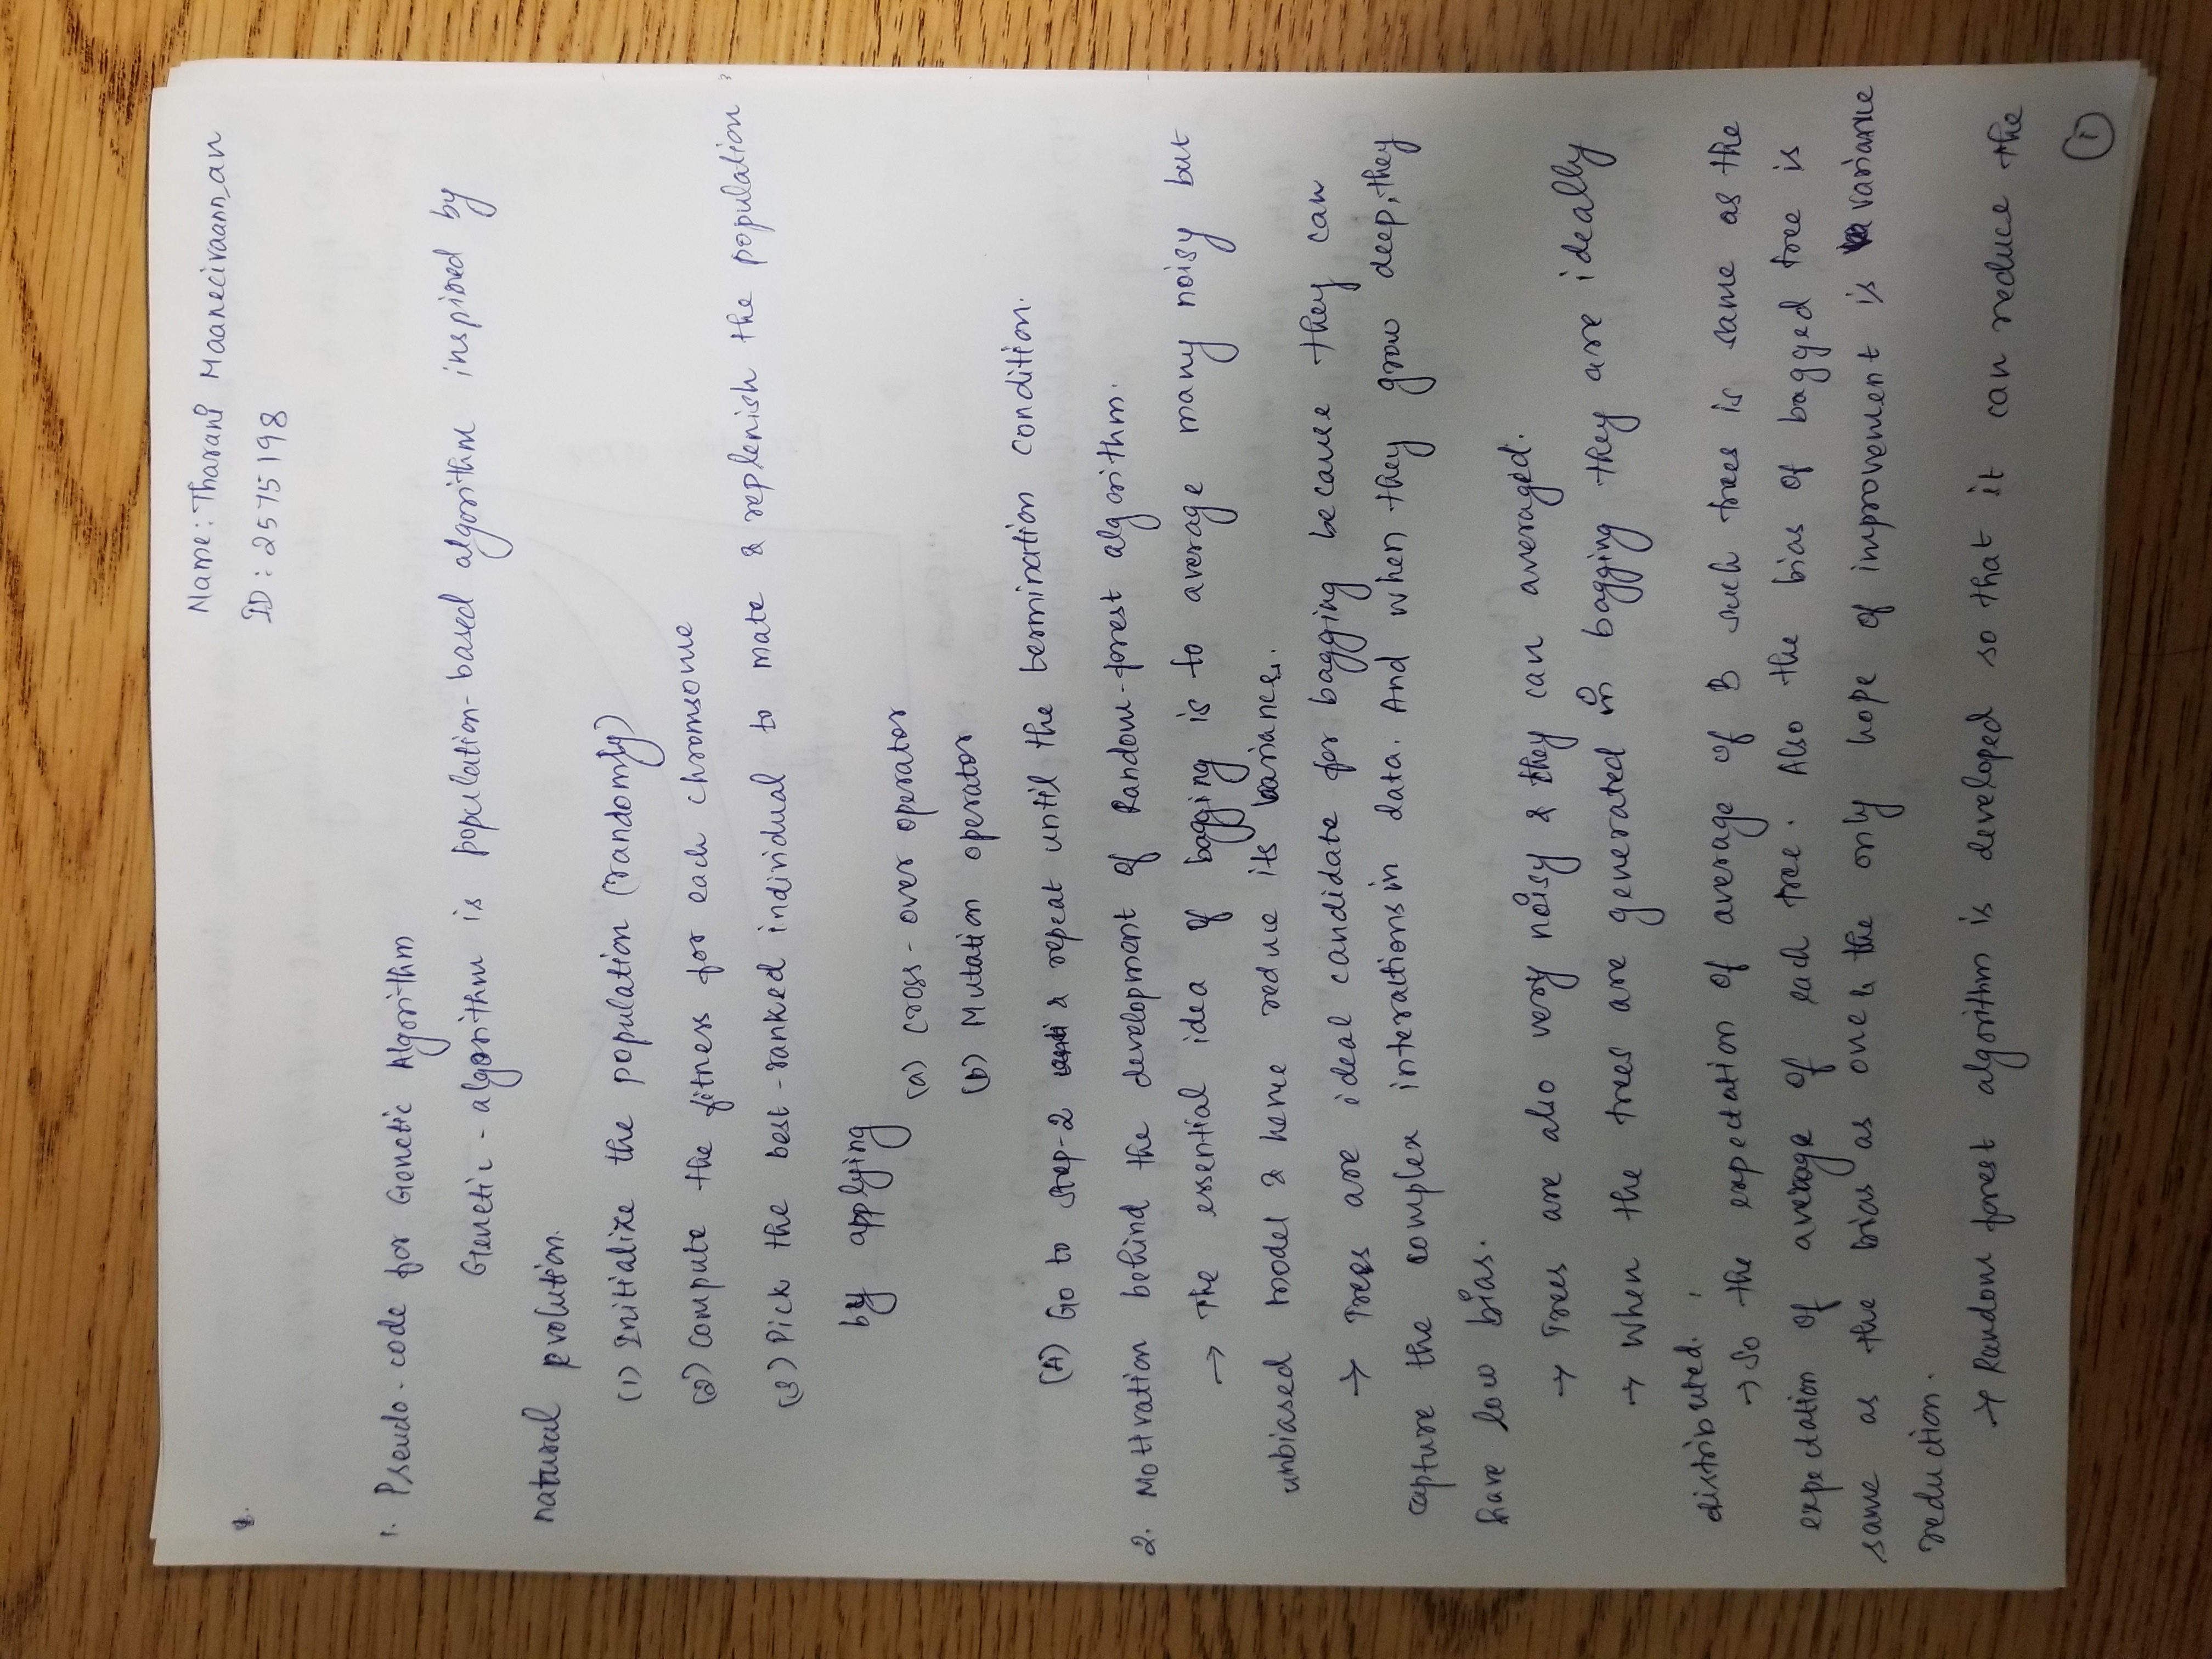 Name: Tharani Maanecivaannan
1.
ID: 2575198
1. Pseudo-code for Genetic Algorithm
Genetic-algorithm is population-based algorithm inspired by
natural evolution.
(1) Initialize the population (randomly)
(2) compute the fitness for each chromsome
(3) Pick the best-ranked individual to mate & replenish the population
by applying
(a) cross-over operator
(b) Mutation operator
(4) Go to step-2 & repeat until the termination condition.
2. Motivation behind the development of Random-forest algorithm.
→ The essential idea of bagging is to average many noisy but
unbiased model & hence reduce its variances.
→ Trees are ideal candidate for bagging because they can
capture the complex interactions in data. And when they grow deep, they
have low bias.
→ Trees are also very noisy & they can averaged.
→ When the trees are generated in bagging they are ideally
distributed.
→ So the expectation of average of B such trees is same as the
expectation of average of each tree. Also the bias of bagged tree is
same as the bias as one & the only hope of improvement is variance
reduction.
→ Random forest algorithm is developed so that it can reduce the
1